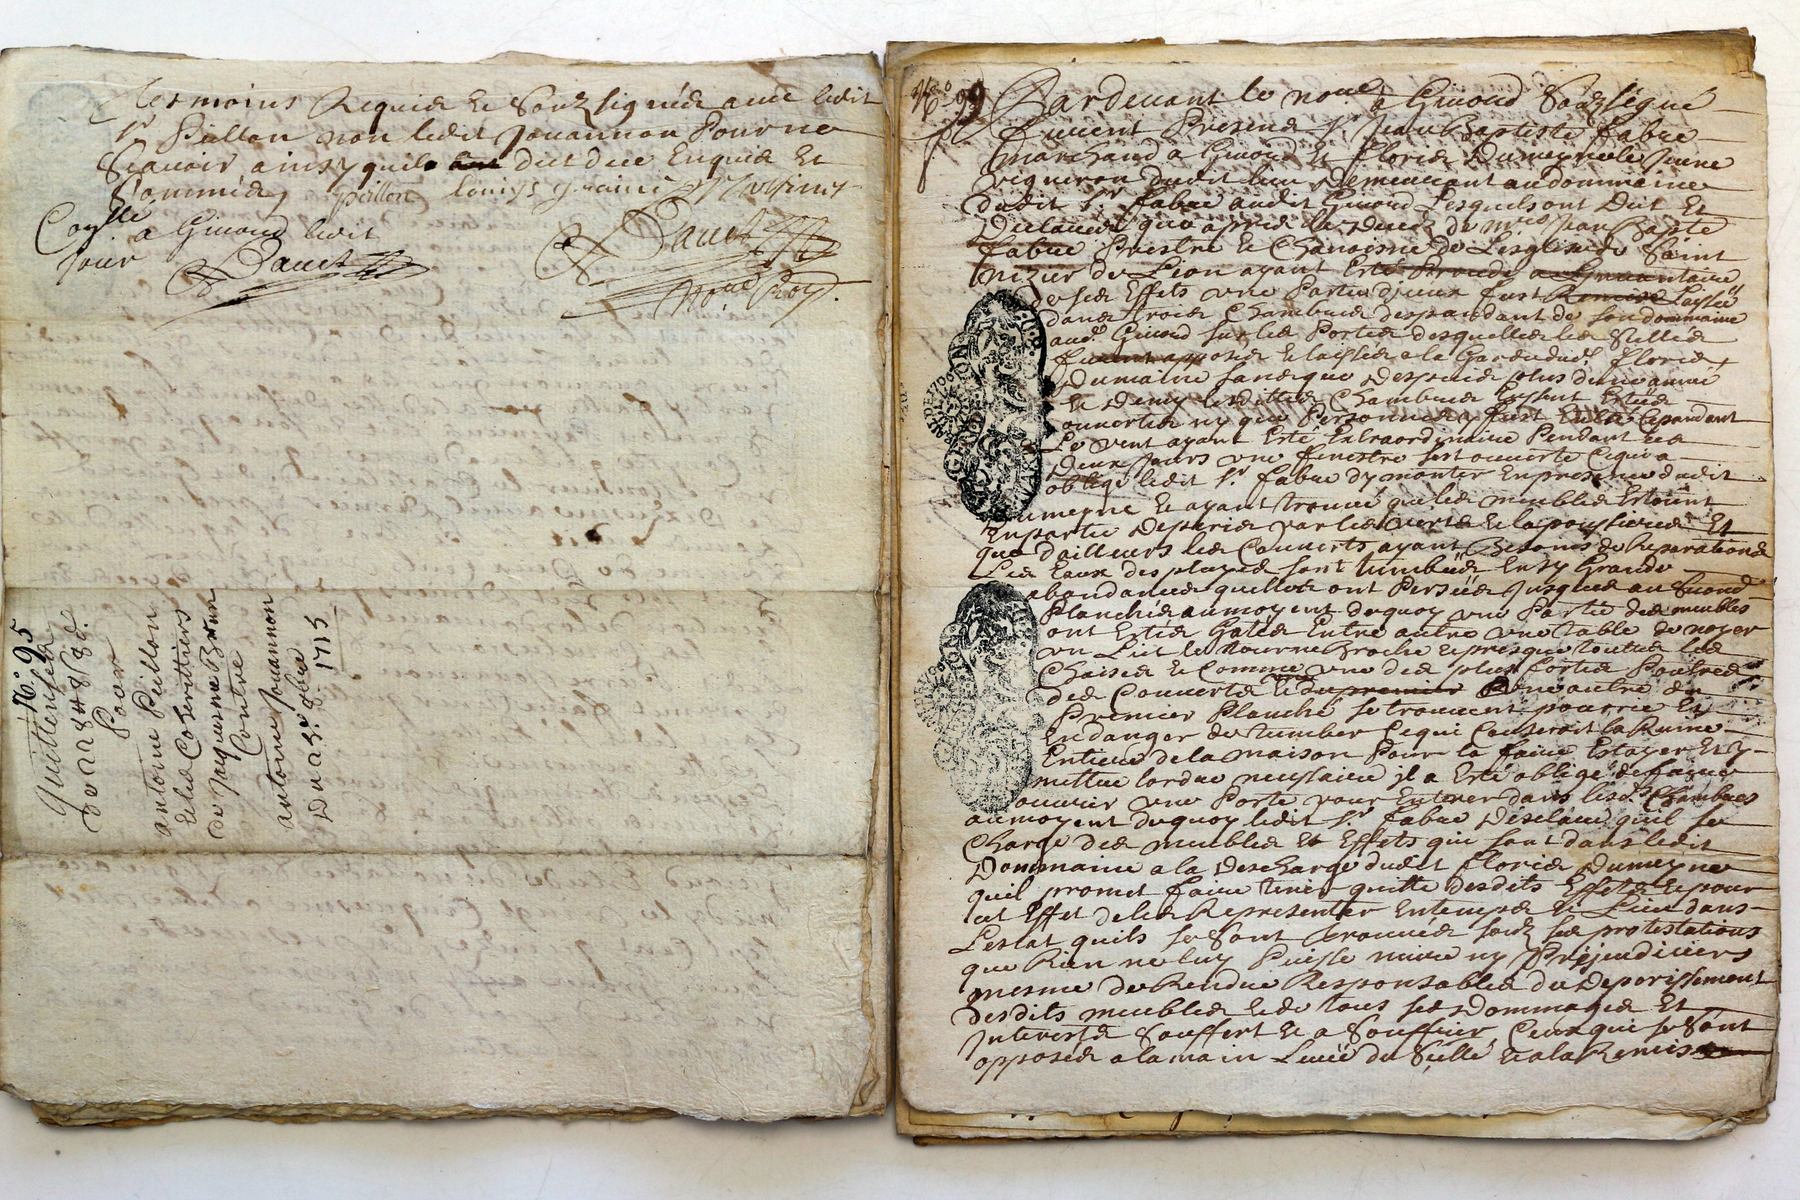 tesmoins Requis et Soubzsignés avec ledit
Sr Peillon non ledit Jouannon Pour ne
Scavoir ainsy quils ont dict de ce Enquis et
Sommés peillon
Coplle a Givord ledit
Jour Dauet Dauet
Not. Roy.
N.° 95
Quittance de
224# 8s 8d.
Pour
Antoine Peillon
et les Coheritiers
de Jaquesme Brun
Contre
antoine Jouannon
Du 25.e 8bre
1715
No 99 Pardevant le nore a Givord Soubzsigné
furent Presens Sr Jean Baptiste fabre
marchand a Givord Et floris Dumeyne le Jeune
vigneron dudit lieu Demeurant au dommaine
dudit Sr fabre audit Givord Lesquels ont Dit Et
Declaré qu'apres le deces de mre Jean Bapte
fabre Prestre et Chanoisne de Lesglise de Saint
nizier de Lion ayant Esté Procedé a Linvantaire
de ses Effets une Partie d'jceux fust Laissée
dans trois Chambres despandant de son dommaine
aud. Givord sur les Portes desquelles les Scellés
furent apposés et laissés a la Garde dud. floris
Dumaine sans que Despuis plus d'une année
et Demy lesdittes Chambres Eussent Estés
ouvertes ny que Personne y fust Entré Cependant
Le vent ayant Esté Extraordinaire Pendant ces
Deux Jours une fenestre sest ouverte Ce qui a
obligé ledit Sr. fabre dy monter En presence dudit
Dumeyne Et ayant trouvé que les meubles Estoient
En partie Deperis par les verts et la poussiere Et
que dailleurs les Couverts ayant Besoins de Reparations
Les Eaux des pluyes sont tumbées En sy Grande
abondance quelles ont Persées Jusques au Second
Planché au moyent de quoy une Partie des meubles
ont Estés Gatés Entre autre une table de noyer
un Lit le tourne Broche et presque toutes les
Chaises Et Comme une des plus fortes Poutres
des Couverts et du premier une autre du
Premier Planché se trouvent pourrie Et
En danger de tumber Ce qui Causeroit la Ruine
Entiere de la maison Pour la faire Estayer Et y
mettre lordre necessaire jl a Esté obligé de faire
ouvrir une Porte pour Entrer dans lesd.s Chambres
au moyent de quoy ledit Sr. fabre Desclare quil se
Charge des meubles Et Effets qui sont dans ledit
Dommaine a la Descharge dudit floris Dumeyne
quil promet faire tenir quitte desdits Effets et pour
cet Effet de les Representer En temps et Lieu dans
Lestat quils se sont trouvés soubz ses protestations
que Rien ne luy Puisse nuire ny Prejudicier
mesme de Rendre Responsables du Deperissement
desdits meubles et de tous ses Dommages Et
Interests Souffert et a Souffrir Ceux qui se sont
opposés a la main Levée du Scellé et a la Remise